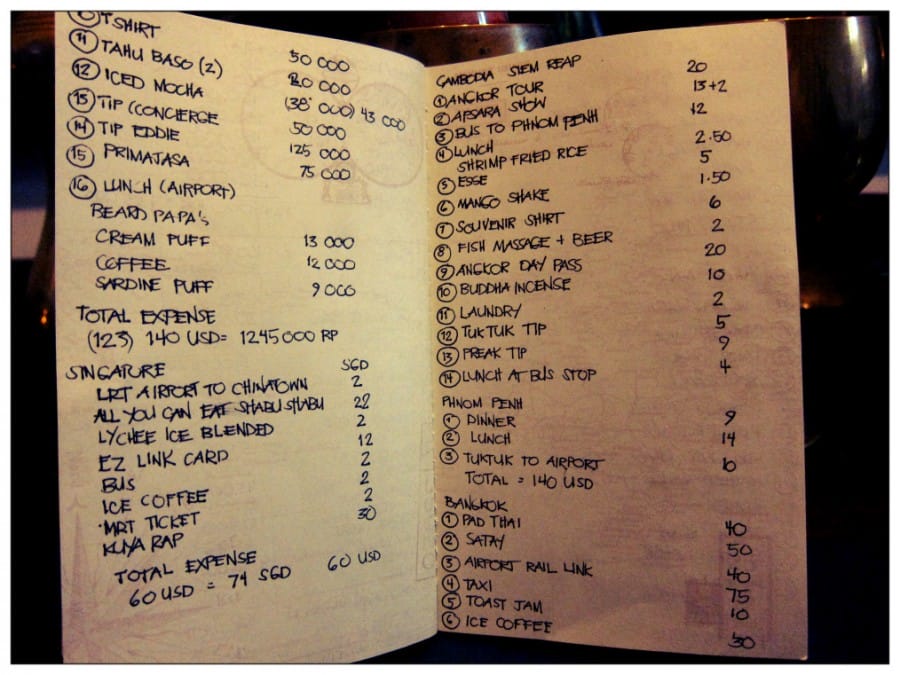 ⑩ T SHIRT 50 000
⑪ TAHU BASO (2) 20 000
⑫ ICED MOCHA (38 000) 43 000
⑬ TIP (CONCIERGE 50 000
⑭ TIP EDDIE 125 000
⑮ PRIMAJASA 75 000
⑯ LUNCH (AIRPORT)
BEARD PAPA'S
CREAM PUFF 13 000
COFFEE 12 000
SARDINE PUFF 9 000
TOTAL EXPENSE
(123) 140 USD = 1245 000 RP
SINGAPORE SGD
LRT AIRPORT TO CHINATOWN 2
ALL YOU CAN EAT SHABU SHABU 22
LYCHEE ICE BLENDED 2
EZ LINK CARD 12
BUS 2
ICE COFFEE 2
MRT TICKET 2
KUYA RAP 30
TOTAL EXPENSE 60 USD
60 USD = 74 SGD
CAMBODIA SIEM REAP
① ANGKOR TOUR 20
② APSARA SHOW 13+2
③ BUS TO PHNOM PENH 12
④ LUNCH
SHRIMP FRIED RICE 2.50
⑤ ESSE 5
⑥ MANGO SHAKE 1.50
⑦ SOUVENIR SHIRT 6
⑧ FISH MASSAGE + BEER 2
⑨ ANGKOR DAY PASS 20
⑩ BUDDHA INCENSE 10
⑪ LAUNDRY 2
⑫ TUKTUK TIP 5
⑬ PREAK TIP 9
⑭ LUNCH AT BUS STOP 4
PHNOM PENH
① DINNER 9
② LUNCH 14
③ TUKTUK TO AIRPORT 10
TOTAL = 140 USD
BANGKOK
① PAD THAI 40
② SATAY 50
③ AIRPORT RAIL LINK 40
④ TAXI 75
⑤ TOAST JAM 10
⑥ ICE COFFEE 30